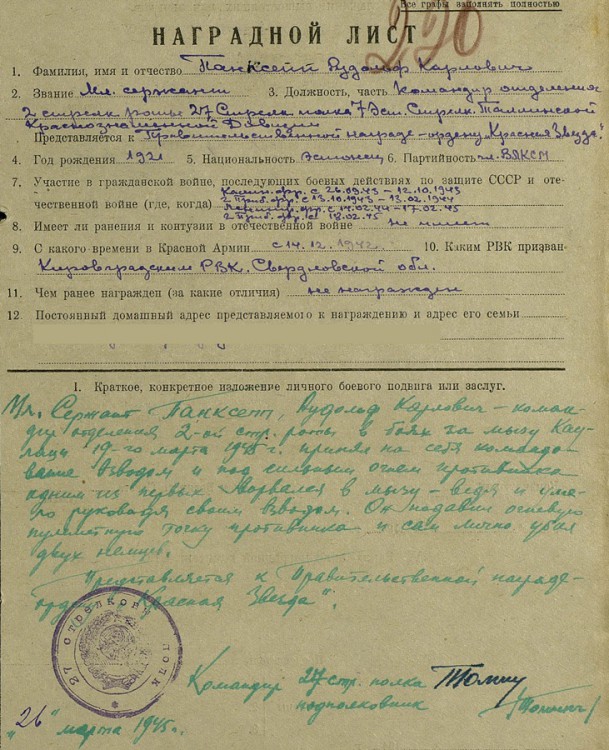 Все графы заполнять полностью
220
НАГРАДНОЙ ЛИСТ
1. Фамилия, имя и отчество Панксепп Рудольф Карлович
2. Звание Мл. сержант 3. Должность, часть Командир отделения
2 стрелк. роты 27 Стрелк. полка 7 Эст. Стрелк. Таллинской
Краснознаменной Дивизии
Представляется к Правительственной награде - ордену "Красная Звезда"
4. Год рождения 1921 5. Национальность Эстонец 6. Партийность чл. ВЛКСМ
7. Участие в гражданской войне, последующих боевых действиях по защите СССР и оте-
чественной войне (где, когда) Калин. фр. с 26.09.43 - 12.10.1943
2 Приб. фр. с 13.10.1943 - 13.02.1944
Ленингр. фр. с 14.02.44 - 17.02.45
2 Приб. фр. с 18.02.45
8. Имеет ли ранения и контузии в отечественной войне не имеет
9. С какого времени в Красной Армии с 14.12.1942 10. Каким РВК призван
Кировградским РВК. Свердловской обл.
11. Чем ранее награжден (за какие отличия) не награжден
12. Постоянный домашный адрес представляемого к награждению и адрес его семьи
I. Краткое, конкретное изложение личного боевого подвига или заслуг.
Мл. Сержант Панксепп, Рудольф Карлович - коман-
дир отделения 2-ой стр. роты в боях за мызу Кау-
лаци 19-го марта 1945 г. принял на себя командо-
вание взводом и под сильным огнем противника
одним из первых ворвался в мызу - ведя и уме-
ло руководя своим взводом. Он подавил огневую
пулеметную точку противника и сам лично убил
двух немцев.
Представляется к Правительственной награде-
ордену "Красная Звезда".
27 СТРЕЛКОВЫЙ ПОЛК
Командир 27 стр. полка
подполковник
"26" марта 1945 г.